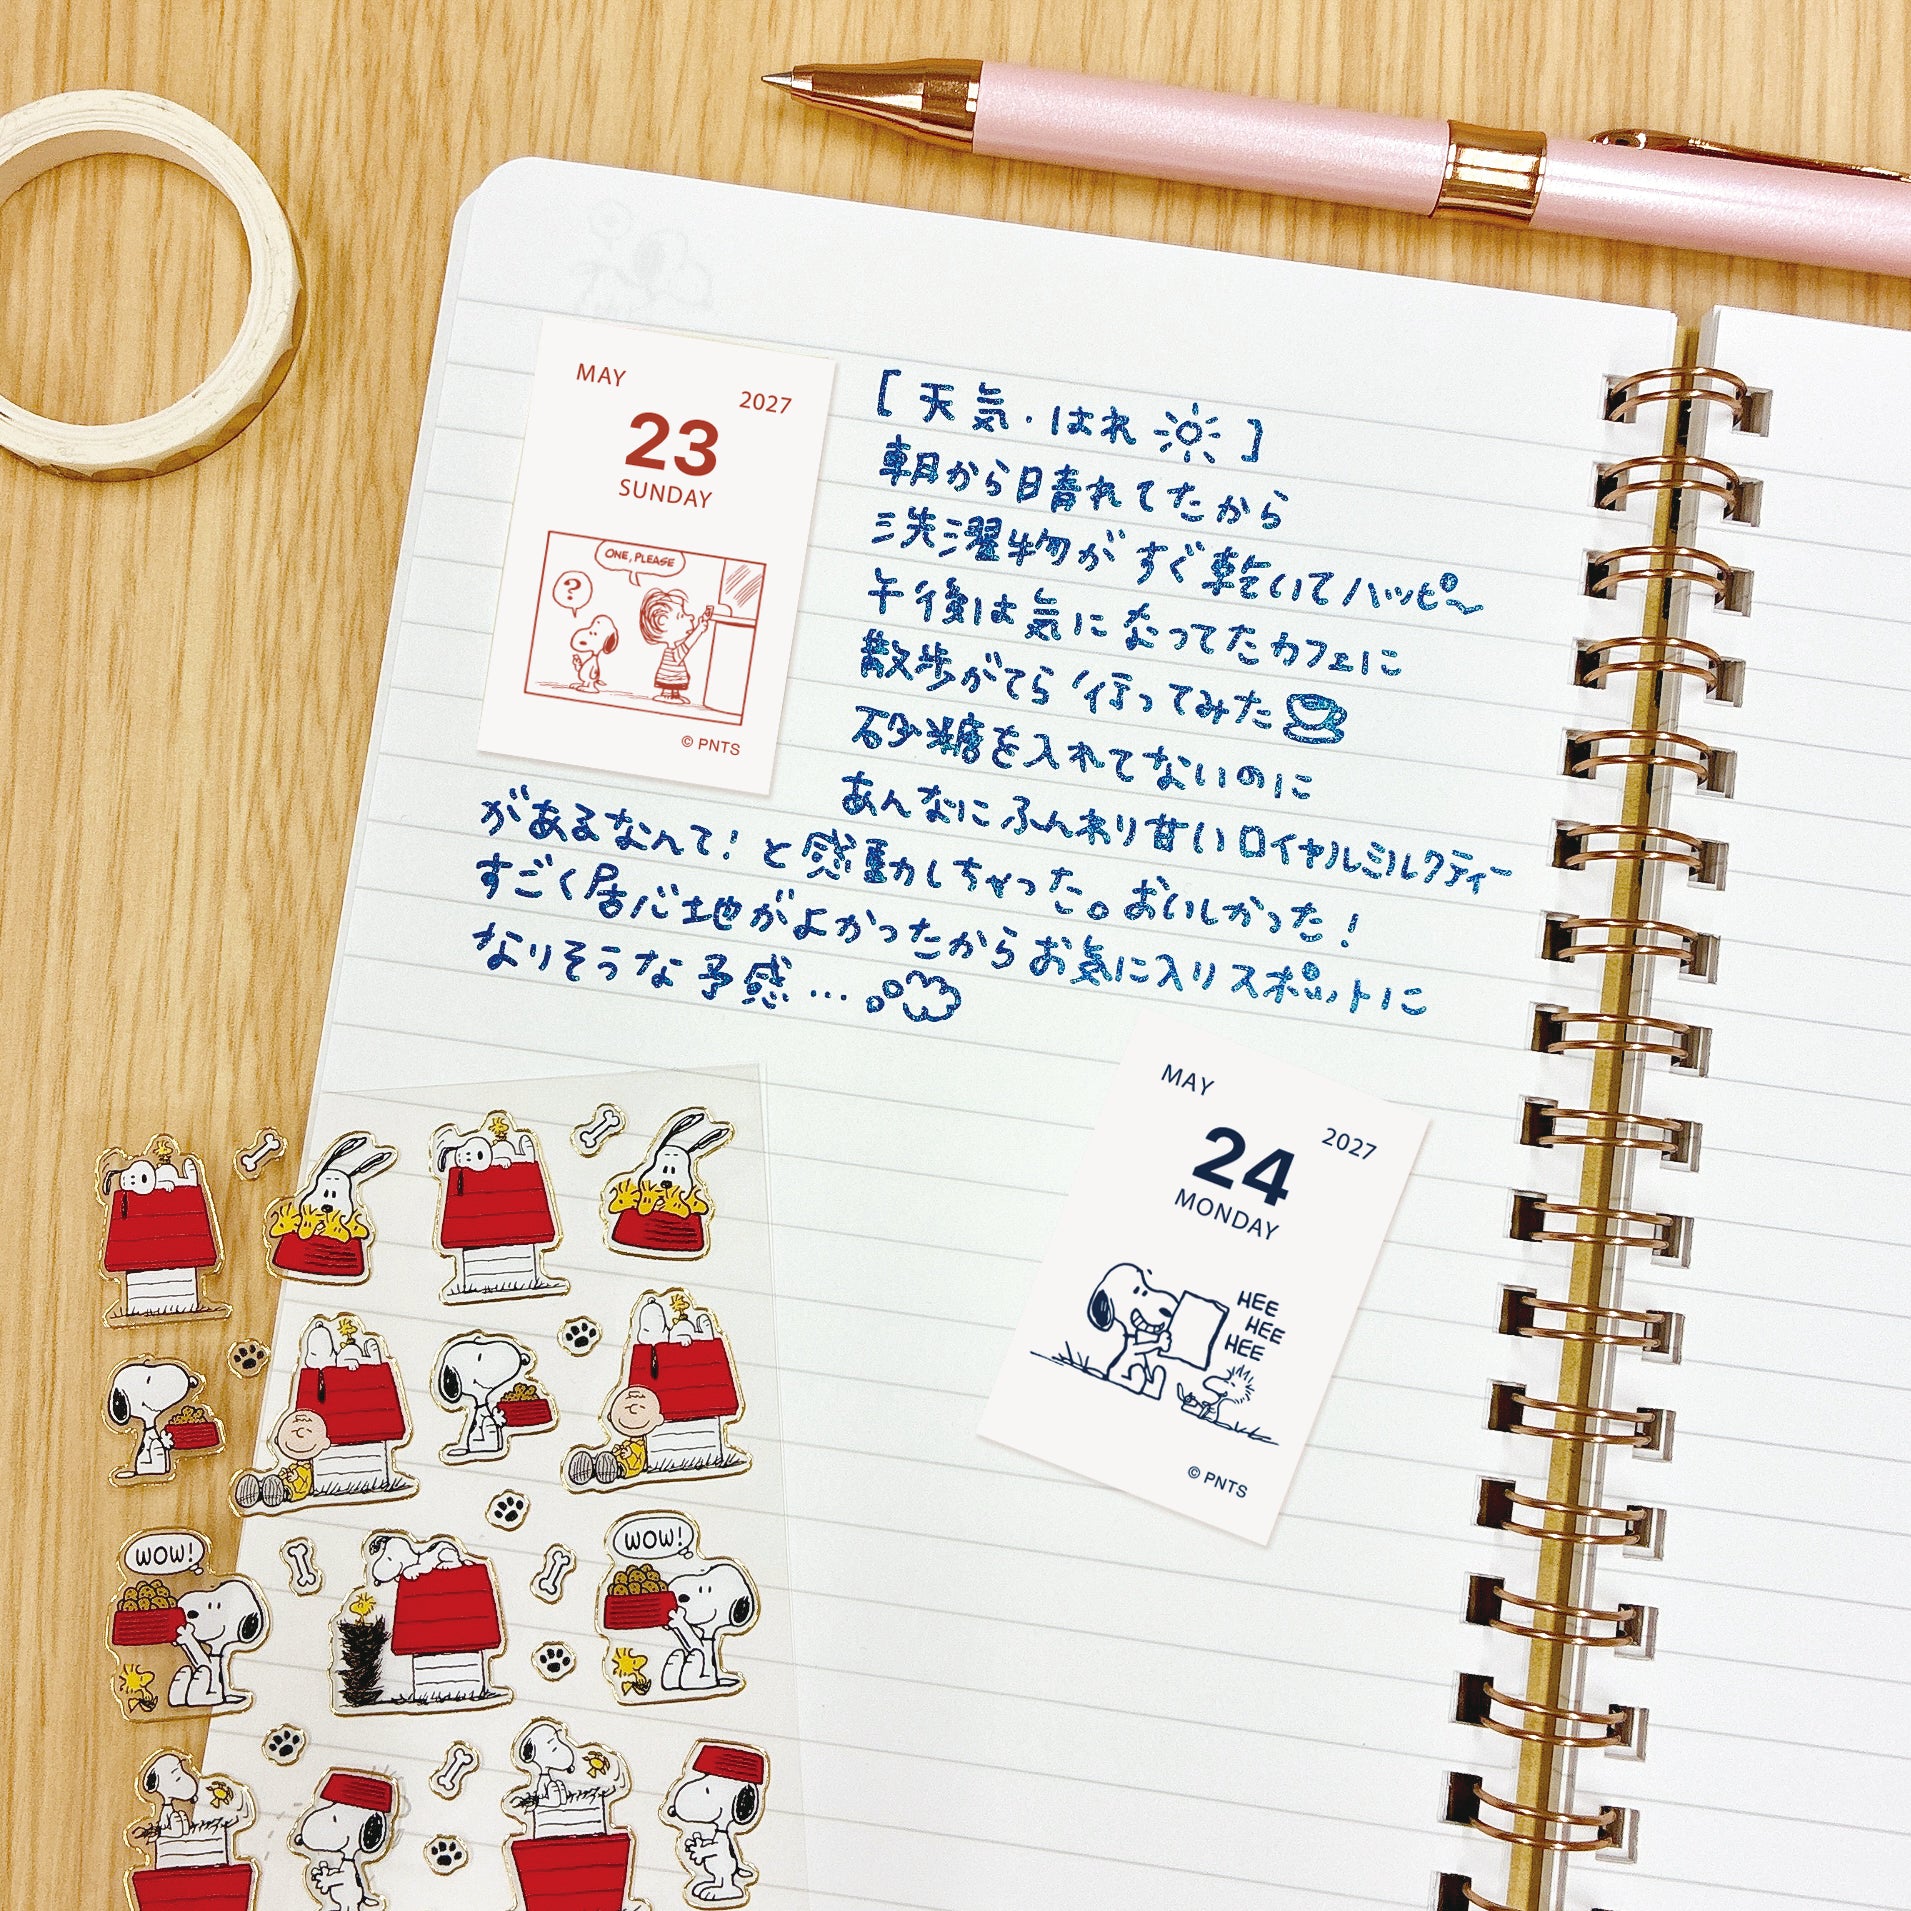 MAY
2027
23
SUNDAY
ONE, PLEASE
?
© PNTS
[天気・はれ]
朝から日晴れてたから
洗濯物がすぐ乾いてハッピ〜
午後は気になってたカフェに
散歩がてら行ってみた
砂糖を入れてないのに
あんなにふんわり甘いロイヤルミルクティー
があるなんて！と感動しちゃった。おいしかった！
すごく居心地がよかったからお気に入りスポットに
なりそうな予感…
MAY
2027
24
MONDAY
HEE
HEE
HEE
© PNTS
WOW!
WOW!